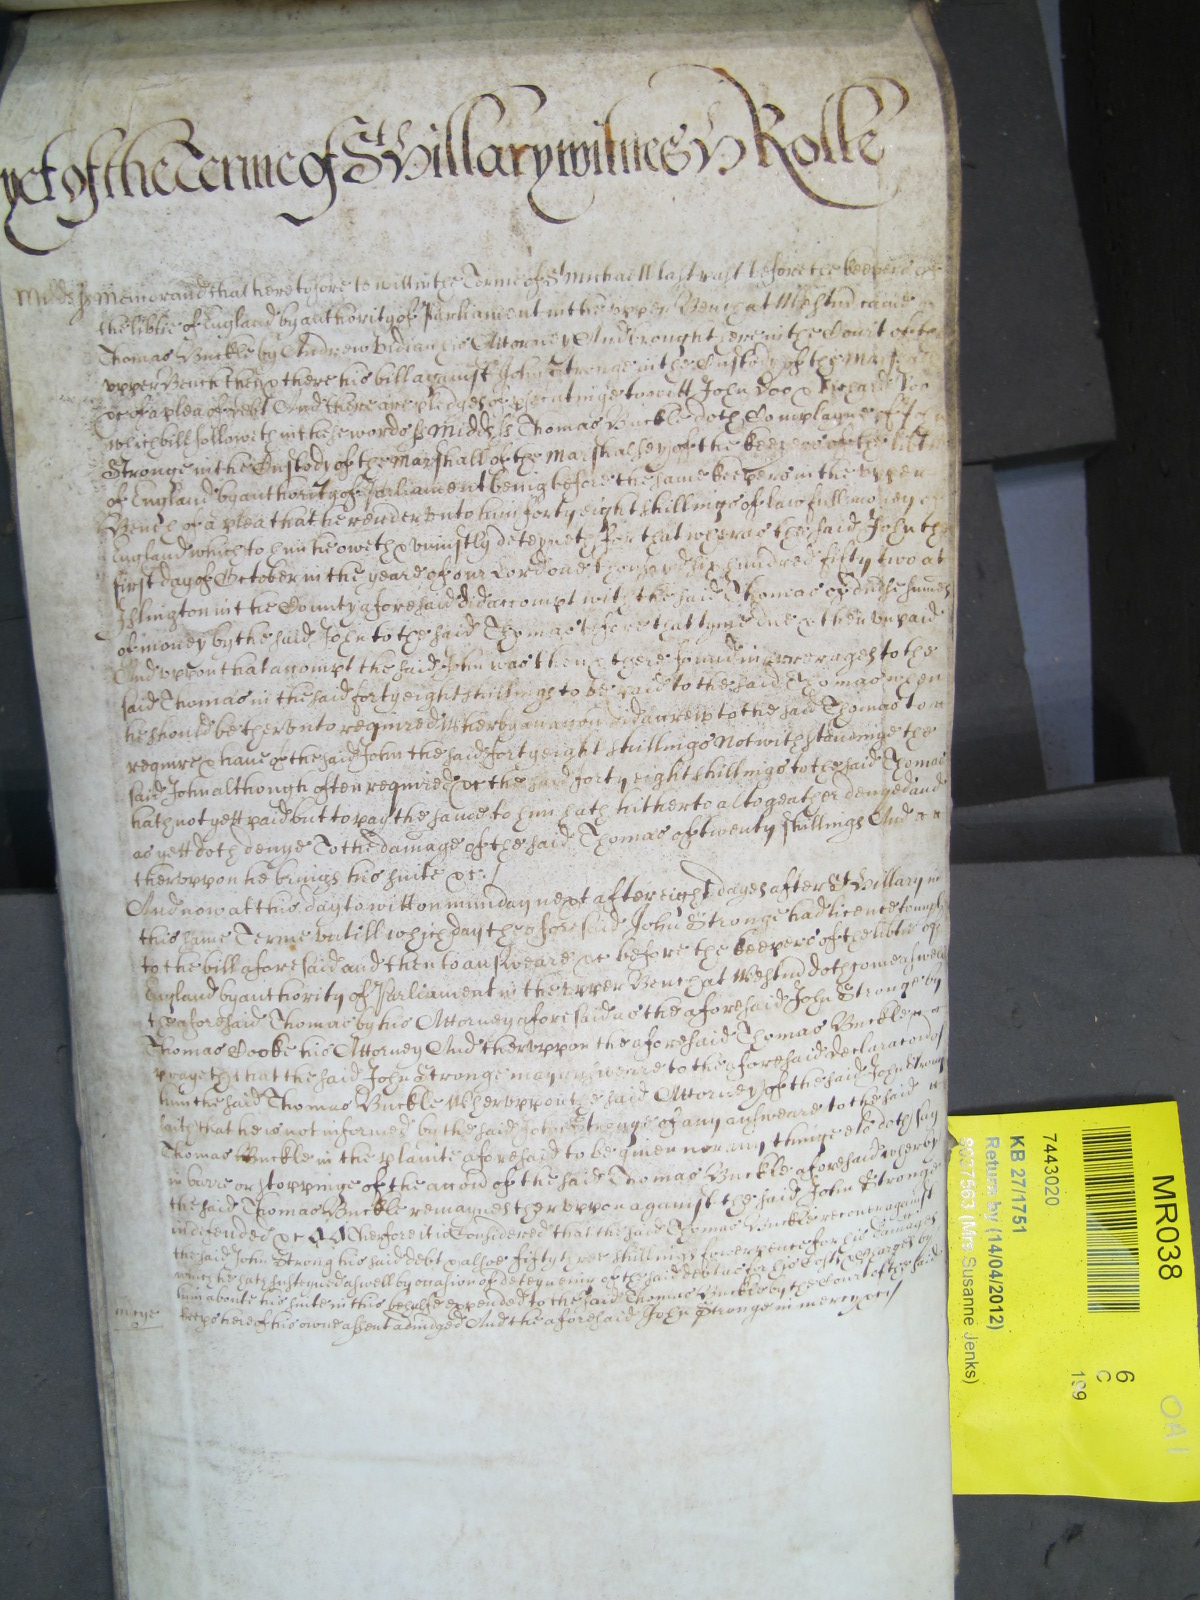 yet of the Terme of St Hillary witnes H Rolle
Midds ss Memorand that heretofore to witt in the Terme of St Michaell last past before the keepers of
the libtie of England by authority of Parliament in the upper Bench at Westmr came
Thomas Buckle by Andrew his Attorney And brought here in the Court of the
upper Bench then & there his bill against John Stronge in the Custody of the Marshall
&c of a plea of debt And there are pledges of prosecutinge to witt John Doo & Richard Roo
which bill followeth in these words ss Midds ss Thomas Buckle doth Complayne of John
Stronge in the Custody of the Marshall of the Marshalsey of the keepers of the libtie
of England by authority of Parliament being before the same keepers in the upper
Bench of a plea that he render unto him forty eight shillings of lawfull money of
England which to him he oweth & uniustly deteyneth For that wheras the said John the
first day of October in the yeare of our Lord one thousand six hundred fifty two at
Islington in the County aforesaid did accompt with the said Thomas of divse summes
of money by the said John to the said Thomas before that tyme due & then unpaid
And uppon that accompt the said John was then & there found in arrerages to the
said Thomas in the said forty eight shillings to be paid to the said Thomas when
he should be therunto required Wherby an accon did accrew to the said Thomas to
require & have of the said John the said forty eight shillings Notwithstandinge the
said John although often required &c the said forty eight shillings to the said Thomas
hath not yett paid but to pay the same to him hath hitherto altogeather denyed and
as yett doth denye To the damage of the said Thomas of twenty shillings And
theruppon he brings his suite &c:/
And now at this day to witt on munday next after eight dayes after St Hillary in
this same Terme untill which day the aforesaid John Stronge had licence to imple
to the bill aforesaid and then to answeare &c before the keepers of the libtie of
England by authority of Parliament in the upper Bench at Westmr doth come aswell
the aforesaid Thomas by his Attorney aforesaid as the aforesaid John Stronge by
Thomas Cooke his Attorney And theruppon the aforesaid Thomas Buckle
prayeth that the said John Stronge may answeare to the aforesaid declaracon of
him the said Thomas Buckle Wheruppon the said Attorney of the said John Stronge
saith that he is not informed by the said John Stronge of any answeare to the said
Thomas Buckle in the plainte aforesaid to be given nor any thinge els doth say
in barre or stoppinge of the accon of the said Thomas Buckle aforesaid wherby
the said Thomas Buckle remaynes theruppon against the said John Stronge
undefended &c Therfore it is Considered that the said Thomas Buckle recover against
the said John Strong his said debt & alsoe fifty three shillings fower pence for his damages
which he hath susteyned aswell by occasion of deteyneing of the said debt as for his Costs & Charges by
him aboute his suite in this behalfe expended to the said Thomas Buckle by the Court of the said
keeps here of his owne assent adiudged And the aforesaid John Stronge in mercy &c/
mcye
MR038
7443020
KB 27/1751
Return by (14/04/2012)
(Mrs Susanne Jenks)
6
C
199
OA1